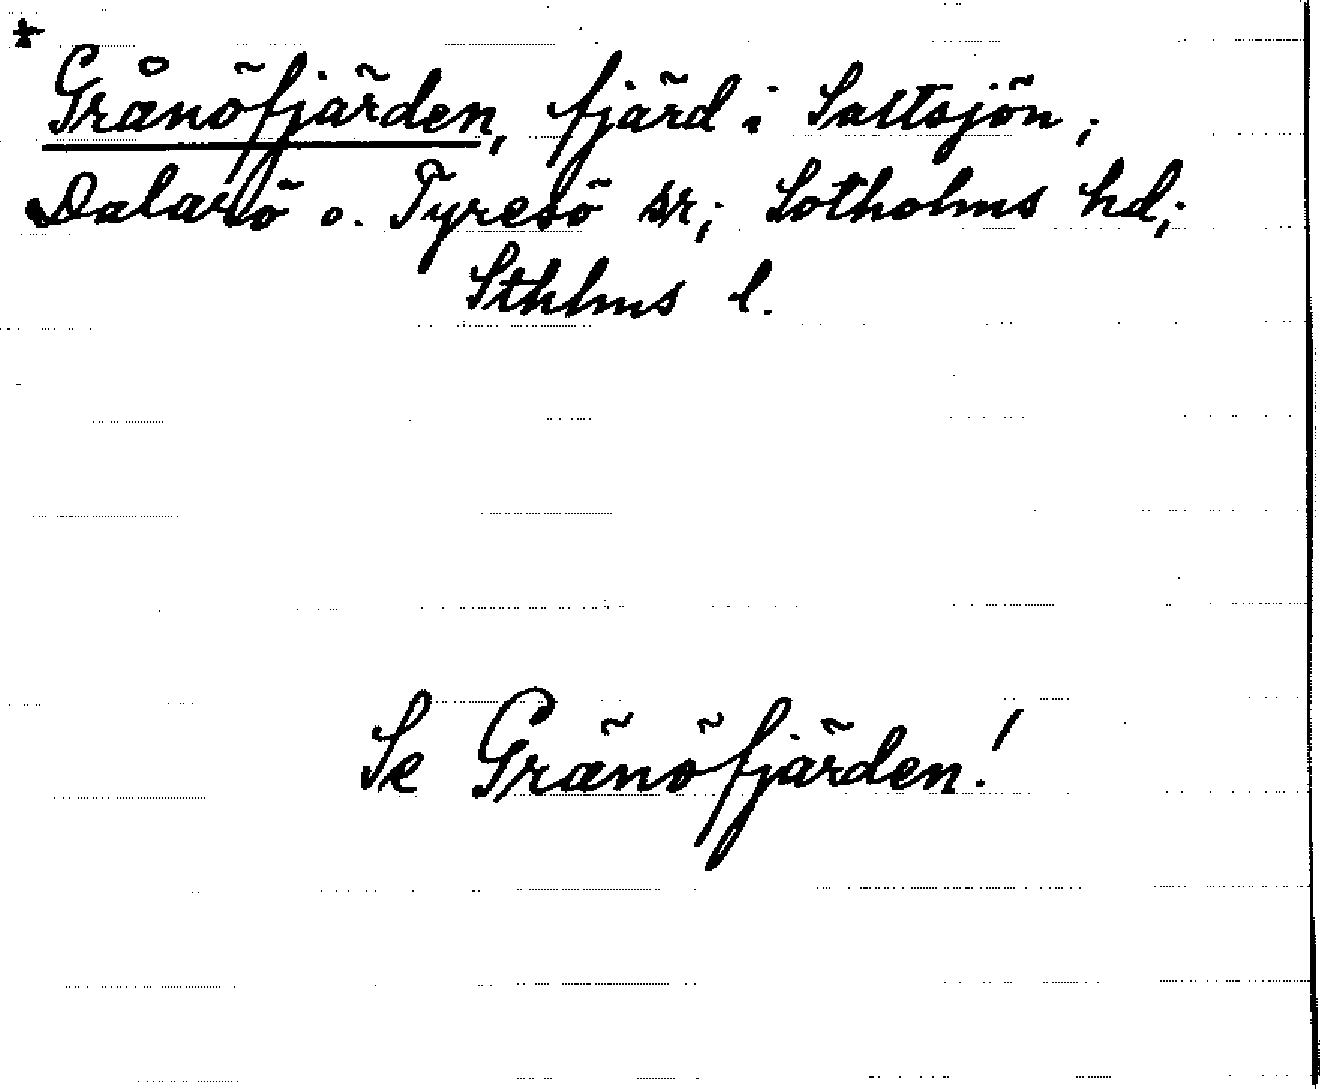 * Grånöfjärden, fjärd i Saltsjön;
Dalarö o. Tyresö sr; Sotholms hd;
Sthlms l.
Se Gränöfjärden!